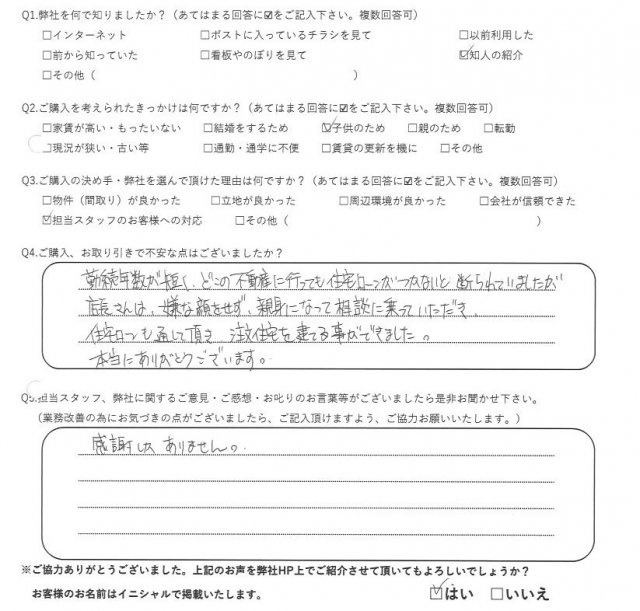 Q1.弊社を何で知りましたか？（あてはまる回答に☑をご記入下さい。複数回答可）
☐インターネット ☐ポストに入っているチラシを見て ☐以前利用した
☐前から知っていた ☐看板やのぼりを見て ☑知人の紹介
☐その他（ ）
Q2.ご購入を考えられたきっかけは何ですか？（あてはまる回答に☑をご記入下さい。複数回答可）
☐家賃が高い・もったいない ☐結婚をするため ☑子供のため ☐親のため ☐転勤
☐現況が狭い・古い等 ☐通勤・通学に不便 ☐賃貸の更新を機に ☐その他
Q3.ご購入の決め手・弊社を選んで頂けた理由は何ですか？（あてはまる回答に☑をご記入下さい。複数回答可）
☐物件（間取り）が良かった ☐立地が良かった ☐周辺環境が良かった ☐会社が信頼できた
☑担当スタッフのお客様への対応 ☐その他（ ）
Q4.ご購入、お取り引きで不安な点はございましたか？
勤続年数が短く、どこの不動産に行っても住宅ローンがつかないと断られていましたが
店長さんは、嫌な顔をせず、親身になって相談に乗っていただき、
住宅ローンも通して頂き 注文住宅を建てる事ができました。
本当にありがとうございます。
Q5.担当スタッフ、弊社に関するご意見・ご感想・お叱りのお言葉等がございましたら是非お聞かせ下さい。
（業務改善の為にお気づきの点がございましたら、ご記入頂けますよう、ご協力お願いいたします。）
感謝しか ありません。
※ご協力ありがとうございました。上記のお声を弊社HP上でご紹介させて頂いてもよろしいでしょうか？
お客様のお名前はイニシャルで掲載いたします。 ☑はい ☐いいえ